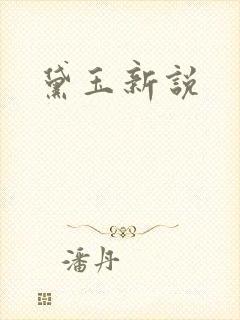 黛玉新說
潘丹